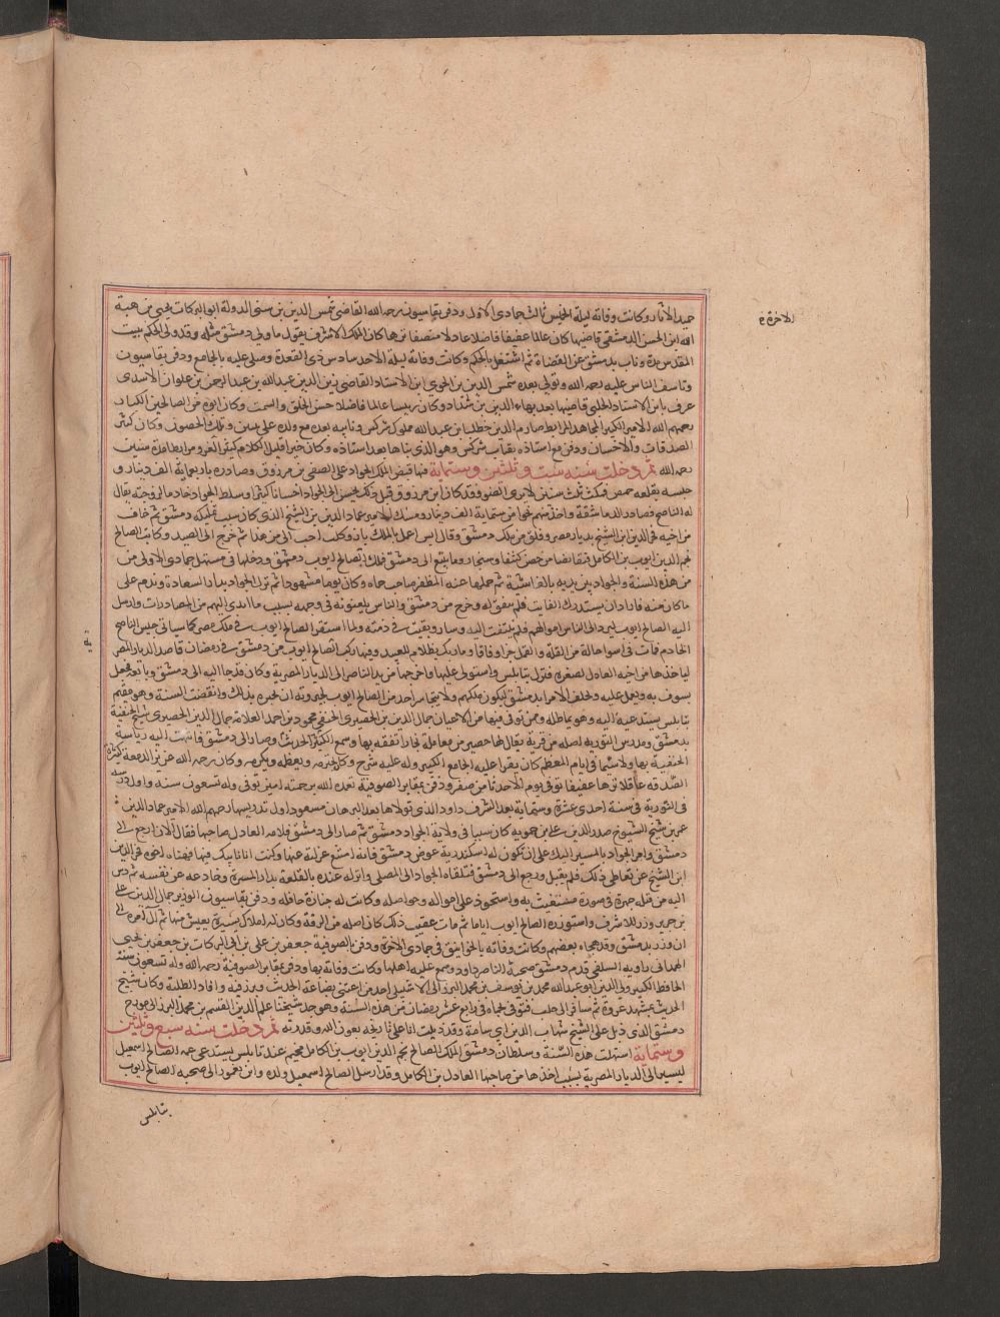 حميد الآثار وكانت وفاته ليلة الخميس ثالث جمادى الاول ودفن بقاسيون رحمه الله القاضي شمس الدين بن سني الدولة ابو البركات يحيى بن هبة
الله ابن الحسن الدمشقي قاضيها كان عالما عفيفا فاضلا عادلا منصفا نزها كان الملك الاشرف يقول ما ولي دمشق مثله وقد ولي الحكم ببيت
المقدس مدة وناب بدمشق عن القضاة ثم اشتغل بالحكم وكانت وفاته ليلة الاحد سادس ذي القعدة وصلي عليه بالجامع ودفن بقاسيون
وتاسف الناس عليه رحمه الله وتولي بعده شمس الدين بن الخوي ابن الاستاد القاضي زين الدين عبد الله بن عبد الرحمن بن علوان الاسدي
عرف بابن الاستاد الحلبي قاضيها بعد بهاء الدين بن شداد وكان رييسا عالما فاضلا حسن الخلق والسمت وكان ابوه من الصالحين الكبار
رحمهم الله الامير الكبير المجاهد المرابط صارم الدين خطلبا بن عبد الله مملوك شركس ونايبه بعده مع ولده على تبنين وتلك الحصون وكان كثير
الصدقات والاحسان ودفن مع استاذه بقباب شركس وهو الذي بناها بعد استاذه وكان خيرا قليل الكلام كثير الغزو مرابطا مدة سنين
رحمه الله ثم دخلت سنه ست وثلثين وستماية فيها قبض الملك الجواد على الصفي بن مرزوق وصادره باربعماية الف دينار و
حبسه بقلعه حمص فمكث ثلث سنين لا يرى الضوء وقد كان ابن مرزوق قبل ذلك يحسن الى الجواد احسانا كثيرا وسلط الجواد خادما لزوجته يقال
له الناصح فصادر الدماشقة واخذ منهم نحوا من ستماية الف دينار ومسك الامير عماد الدين بن الشيخ الذي كان سبب تمليكه دمشق ثم خاف
من اخيه فخر الدين ابن الشيخ بديار مصر وقلق من ملك دمشق وقال ايش اعمل بالملك باز وكلب احب الي من هذا ثم خرج الى الصيد وكاتب الصالح
نجم الدين ايوب بن الكامل فتقايضا من حصن كيفا وسنجار وما يتبع الى دمشق فملك الصالح ايوب دمشق ودخلها في مستهل جمادي الاولى من
من هذه السنة والجواد بين يديه بالغاشية ثم حملها عنه المظفر صاحب حماه وكان يوما مشهودا ثم نزل الجواد بدار السعادة وندم على
ما كان منه فاراد ان يستدرك الفايت فلم يتفق له وخرج من دمشق والناس يلعنونه في وجهه بسبب ما اسدى اليهم من المصادرات وارسل
اليه الصالح ايوب ليرد الى الناس اموالهم فلم يلتفت اليه وسار وبقيت في ذمته ولما استقر الصالح ايوب في ملك مصر كما سياتي حبس الناصح
الخادم فمات في اسوا حالة من القلة والقمل جزا وفاقا وما ربك بظلام للعبيد وفيها ركب الصالح ايوب من دمشق في رمضان قاصد الديار المصر
ية
لياخذها من اخيه العادل لصغره فنزل بنابلس واستولى عليها واخرجها من يد الناصر
الى الديار المصرية وكان قد جا اليه الى دمشق وبايعه فجعل
يسوف به ويعمل عليه ويحلف الامرا بدمشق ليكون ملكهم ولا يتجاسر احد من الصالح ايوب لجبروته ان يخبره بذلك وانقضت السنة وهو مقيم
بنابلس يستدعيه اليه وهو يماطله وممن توفي فيها من الاعيان جمال الدين بن الحصيري الحنفي محمود بن احمد العلامة جمال الدين الحصيري شيخ الحنفية
بدمشق ومدرس النورية اصله من قرية يقال لها حصير من معاملة بخارا تفقه بها وسمع الكثير الحديث وصار الى دمشق فانتهت اليه رياسة
الحنفية بها ولا سيما في ايام المعظم كان يقرا عليه الجامع الكبير وله عليه شرح وكان يحترمه ويعظمه ويكرمه وكان رحمه الله غزير الدمعة كثير
الصدقه عاقلا نزها عفيفا توفي يوم الاحد ثامن صفر ودفن بمقابر الصوفية تغمده الله برحمته امين توفي وله تسعون سنه واول درسه
في النورية في سنة احدى عشرة وستماية بعد الشرف داود الذي تولاها بعد البرهان مسعود اول تدريسها رحمهم الله الامير عماد الدين
عمر بن شيخ الشيوخ صدر الدين علي بن حمويه كان سببا في ولاية الجواد دمشق ثم صار الى دمشق فلامه العادل صاحبها فقال الان ارجع الى
دمشق وامر الجواد بالمسير اليك على ان تكون له اسكندرية عوض دمشق فانه امتنع عزلته عنها وكنت انا نايبك فيها فنهاه اخوه فخر الدين
ابن الشيخ عن تعاطي ذلك فلم يقبل ورجع الى دمشق فتلقاه الجواد الى المصلى وانزله عنده بالقلعة بدار المسرة وخادعه عن نفسه ثم دس
اليه من قتله جهرة في صورة مستغيث به واستحوذ على امواله وحواصله وكانت له جنازة حافله ودفن بقاسيون الوزير جمال الدين علي
بن جرير وزر للاشرف واستوزره الصالح ايوب اياما ثم مات عقيب ذلك كان اصله من الرقة وكان له املاك يسيره يعيش منها ثم آل امره الى
ان وزر بدمشق وقد هجاه بعضهم وكانت وفاته بالخوانيق في جمادي الاخرة ودفن بالصوفية جعفر بن علي بن ابي البركات بن جعفر بن يحيى
الهمداني راويه السلفي قدم دمشق صحبة الناصر داود وسمع عليه اهلها وكانت وفاته بها ودفن بمقابر الصوفية رحمه الله وله تسعون سنة
الحافظ الكبير زكي الدين ابو عبد الله محمد بن يوسف بن محمد البرزالي الاشبيلي احد من اعتنى بصناعة الحديث وبرز فيه وافاد الطلبة وكان شيخ
الحديث بمشهد عروة ثم سافر الى حلب فتوفي بحماه في رابع عشر رمضان من هذه السنة وهو جد شيخنا علم الدين القسم بن محمد البرزالي مورخ
دمشق الذي ذيل على الشيخ شهاب الدين ابي شامة وقد ذيلت انا على تاريخه بعون الله وقدرته ثم دخلت سنه سبع وثلثين
وستماية استهلت هذه السنة وسلطان دمشق الملك الصالح نجم الدين ايوب بن الكامل مخيم عند نابلس يستدعي عمه الصالح اسمعيل
ليسير الى الديار المصرية بسبب اخذها من صاحبها العادل بن الكامل وقد ارسل الصالح اسمعيل ولده وابن يغمور الى صحبه الصالح ايوب
بنابلس